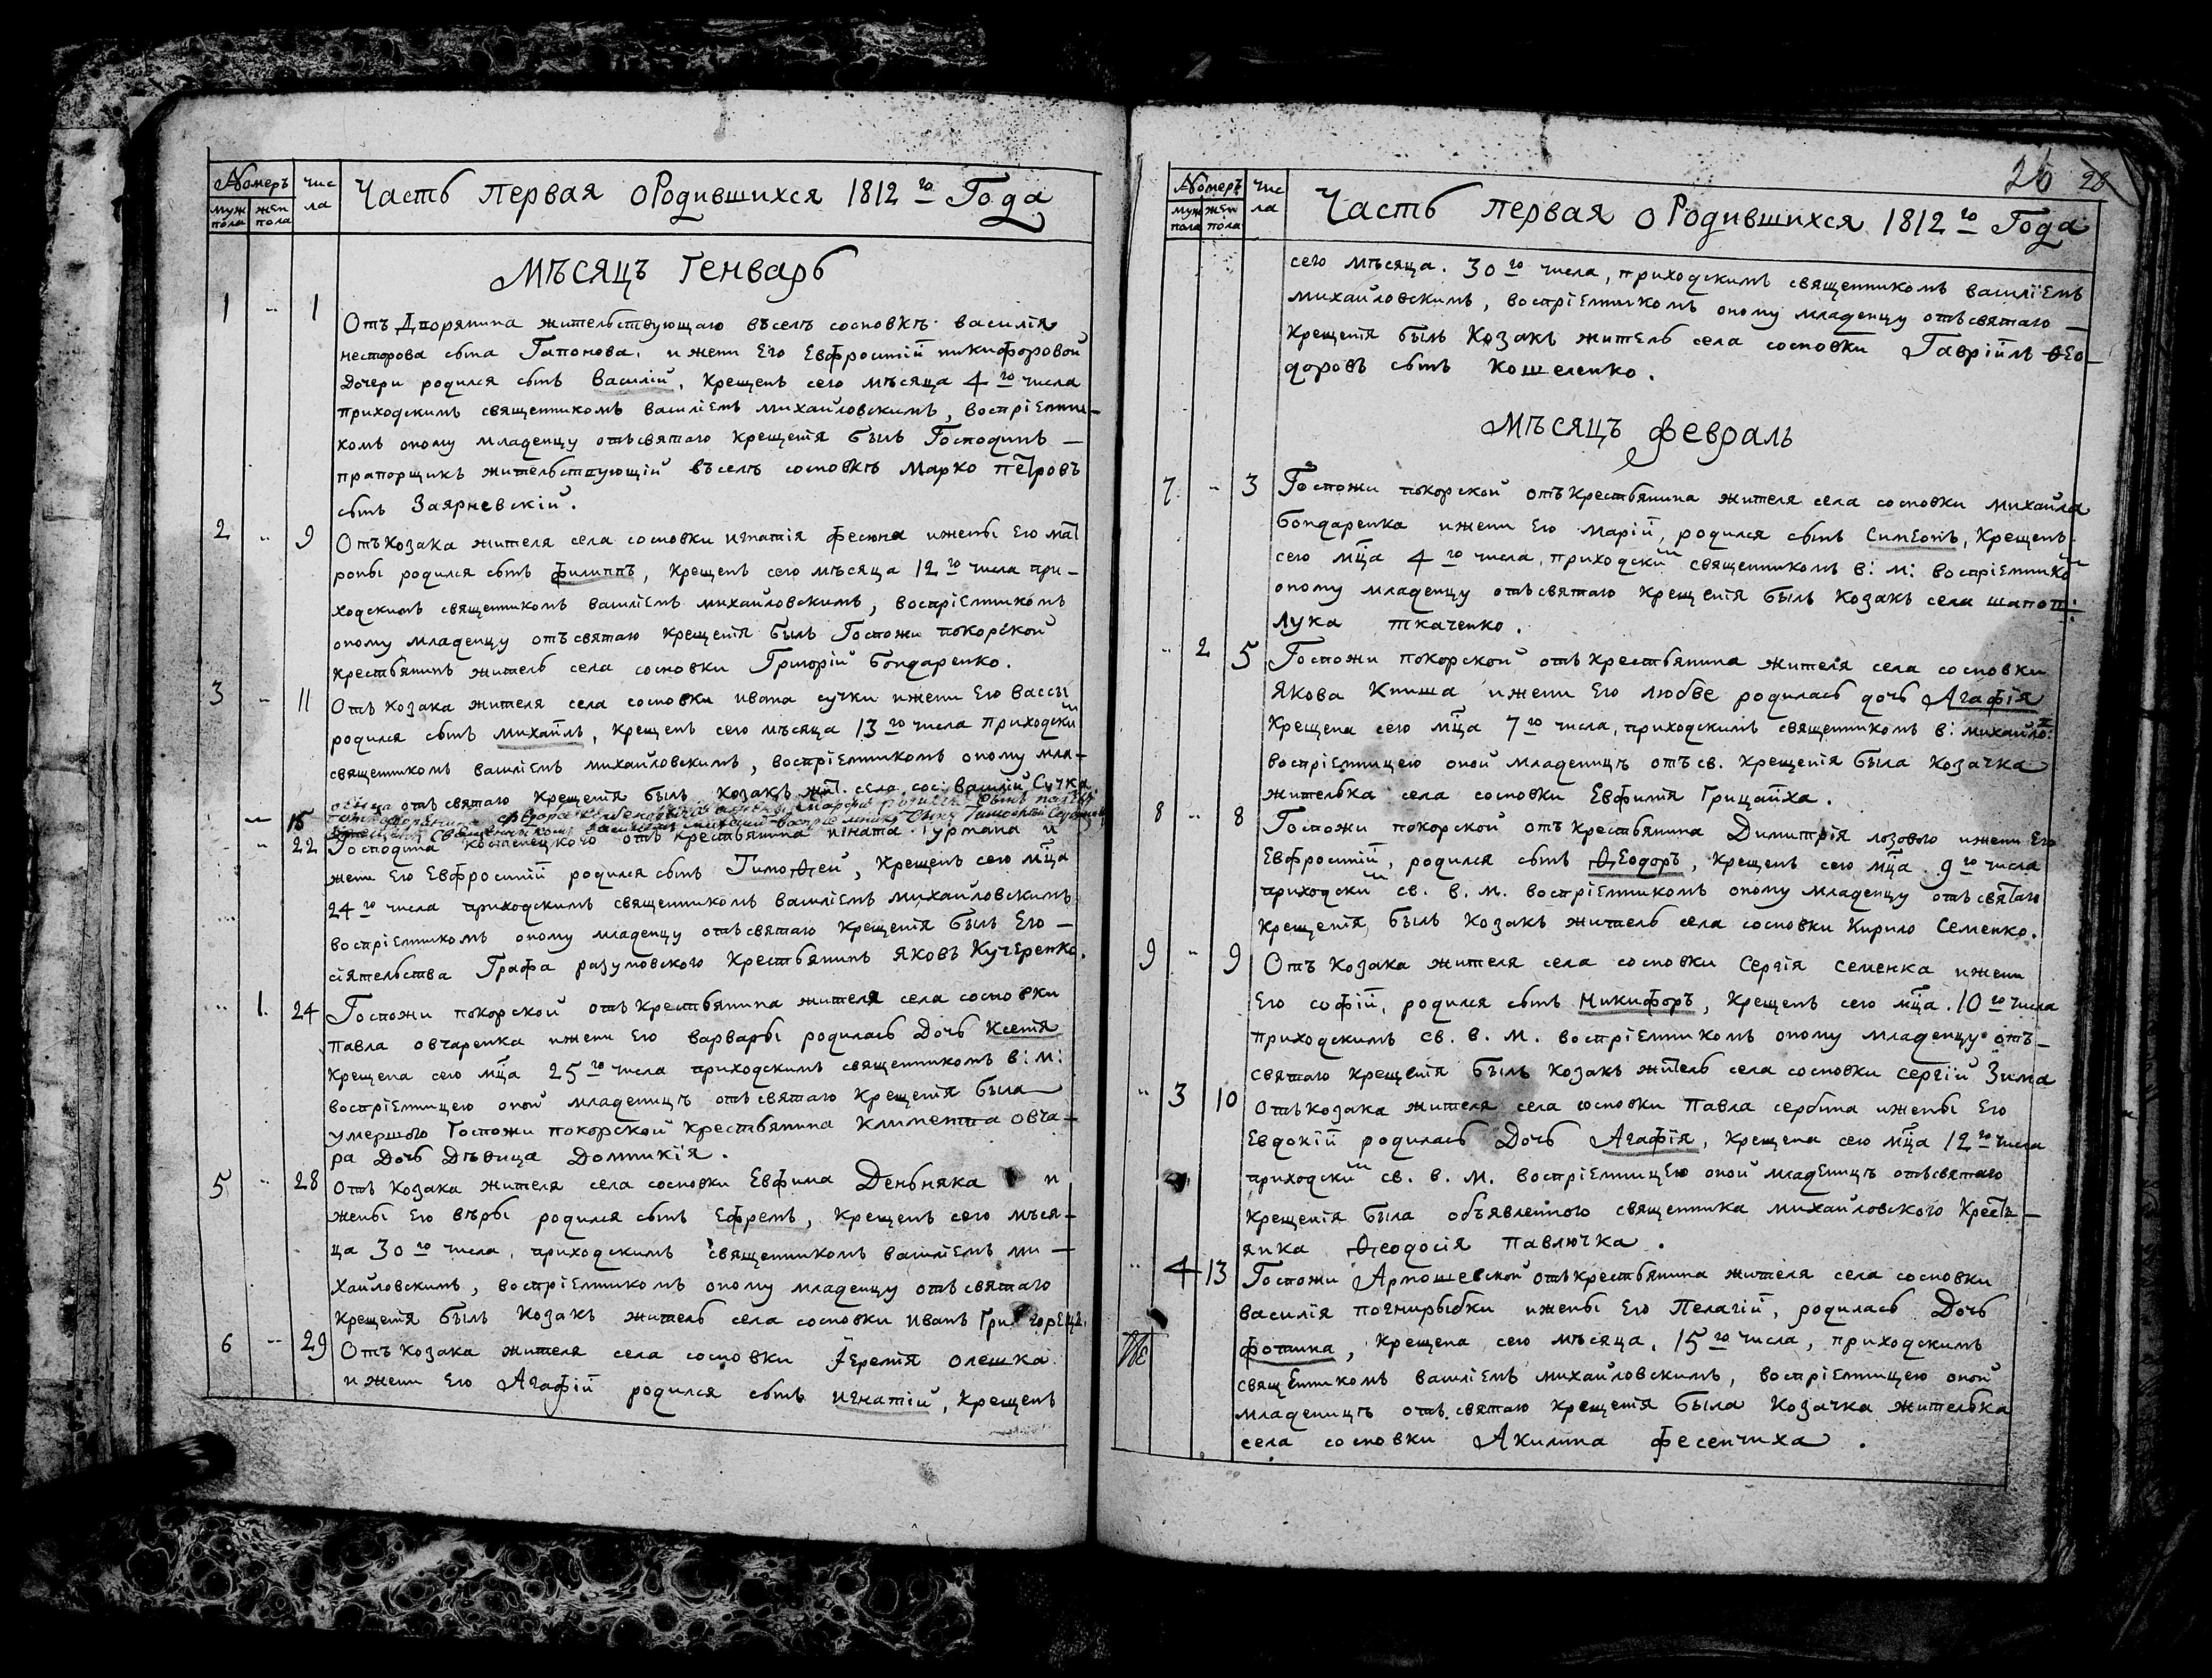 Номеръ
муж пола
жен пола
числа
Часть первая о Родившихся 1812 го Года
Мѣсяцъ Генварь
1 " 1
Отъ Дворянина жительствующаго въ селѣ сосновкѣ василія
несторова сына Гапонова, и жени Его Евфросиній никифоровой
Дочери родился сынъ Василій, крещенъ сего мѣсяца 4 го числа
приходскимъ священникомъ василіемъ михайловскимъ, воспріемни-
комъ оному младенцу отъ святаго крещенія былъ Господинъ —
прапорщикъ жительствующій въ селѣ сосновкѣ Марко петровъ
сынъ Заярневскій.
2 " 9
Отъ Козака жителя села сосновки игнатія фесюна и жены Его мат
роны родился сынъ филиппъ, крещенъ сего мѣсяца 12 го числа при-
ходскимъ священникомъ василіемъ михайловскимъ, воспріемникомъ
оному младенцу отъ святаго крещенія былъ Госпожи покорской
крестьянинъ житель села сосновки Григорій Бондаренко.
3 " 11
Отъ Козака жителя села сосновки ивана сучки и жени Его вассы
родился сынъ михаилъ, крещенъ сего мѣсяца 13 го числа приходским
священникомъ василіемъ михайловскимъ, воспріемникомъ оному мла-
отъ святаго крещенія былъ козакъ жит. села сос: василій Сучка
15
" 22
Господина отъ крестьянина игната Гурмана и
жени Его Евфросиній родился сынъ Тимоѳей, крещенъ сего мца
24 го числа приходскимъ священникомъ василіемъ михайловскимъ
воспріемникомъ оному младенцу отъ святаго крещенія былъ Его —
сіятельства Графа разумовского крестьянинъ Яковъ Кучеренко.
1. 24
Госпожи покорской отъ крестьянина жителя села сосновки
павла овчаренка и жени Его варвары родилась Дочь Ксенія
крещена сего мца 25 го числа приходскимъ священникомъ в: м:
воспріемницею оной младеницѣ отъ святаго крещенія была
умершого Госпожи покорской крестьянина климентия овча-
ра Дочь Дѣвица Домникія.
5 " 28
Отъ козака жителя села сосновки Евфима Деньняка и
жены Его вѣры родился сынъ Ефремъ, крещенъ сего мѣся-
ца 30 го числа, приходскимъ священникомъ василіемъ ми —
хайловскимъ, воспріемникомъ оному младенцу отъ святаго
крещенія былъ козакъ житель села сосновки иванъ
6 " 29
Отъ Козака жителя села сосновки Іеремія олешка
и жени Его Агафій родился сынъ игнатій, крещенъ
26 28
Номеръ
муж пола
жен пола
числа
Часть первая о Родившихся 1812 го Года
сего мѣсяца. 30 го числа, приходскимъ священникомъ василіемъ
михайловскимъ, воспріемникомъ оному младенцу отъ святаго —
крещенія былъ Козакъ житель села сосновки Гавріилъ ѳео-
доровъ сынъ Кошеленко.
Мѣсяцъ февраль
7. " 3
Госпожи покорской отъ крестьянина жителя села сосновки михаила
бондаренка и жени Его Марій, родился сынъ Симеонъ, крещенъ
сего мца 4 го числа, приходским священникомъ в: м: воспріемником
оному младенцу отъ святаго крещенія былъ козакъ села шапош:
лука ткаченко.
" 2 5
Госпожи покорской отъ крестьянина жителя села сосновки
Якова Книша и жени Его любве родилась дочь Агафія
крещена сего мца 7 го числа, приходскимъ священникомъ в: михайло:
воспріемницею оной младеницѣ отъ св. крещенія была козачка
жителька села сосновки Евфимія Грицаиха.
8 " 8
Госпожи покорской отъ крестьянина Димитрія лозового и жени Его
Евфросиній, родился сынъ Ѳеодоръ, крещенъ сего мца. 9 го числа
приходским св. в. м. воспріемникомъ оному младенцу отъ святаго
крещенія, былъ козакъ житель села сосновки Кирило Семенко.
9 " 9
Отъ Козака жителя села сосновки Сергія семенка и жени
Его софій, родился сынъ Никифоръ, крещенъ сего мца. 10 го числа
приходскимъ св. в. м. воспріемникомъ оному младенцу отъ-
святаго крещенія былъ козакъ житель села сосновки сергій Зима
" 3 10
Отъ козака жителя села сосновки павла сербина и жены Его
Евдокій родилась Дочь Агафія, крещена сего мца 12 го числа
приходским св. в. м. воспріемницею оной младеницѣ отъ святаго
крещенія была объявленного священника михайловского крест-
янка Ѳеодосія павлючка.
" 4 13
Госпожи отъ крестьянина жителя села сосновки
василія погнирыбки и жены Его Пелагій, родилась Дочь
фотина, крещена сего мѣсяца. 15 го числа, приходскимъ
священникомъ василіемъ михайловскимъ, воспріемницею оной
младеницѣ отъ святаго крещенія была козачка жителька
села сосновки Акилина фесенчиха.